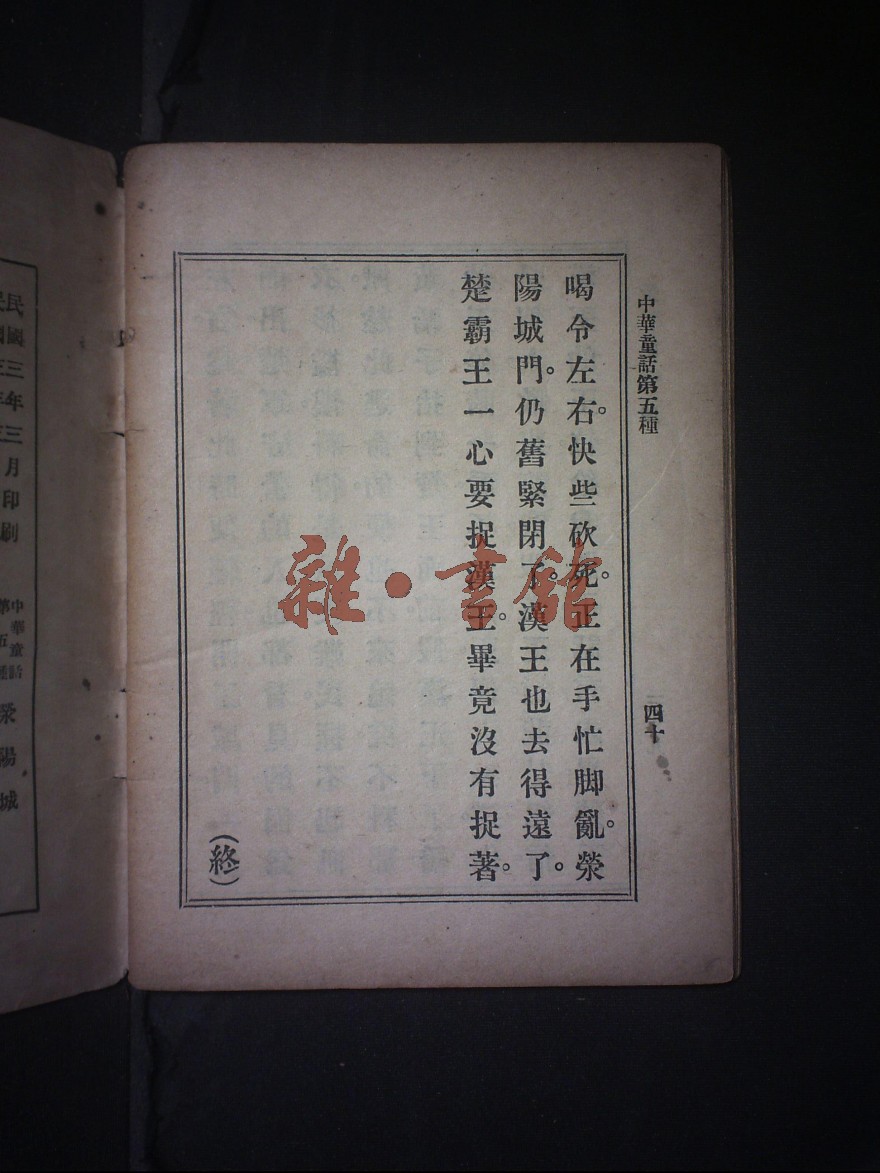 中華童話第五種
四十
喝令左右。快些砍死。正在手忙脚亂。滎
陽城門。仍舊緊閉了。漢王也去得遠了。
楚霸王一心要捉漢王。畢竟沒有捉著。
（終）
雜·書館
民國三年三月印刷
中華童話
第五種
滎陽城